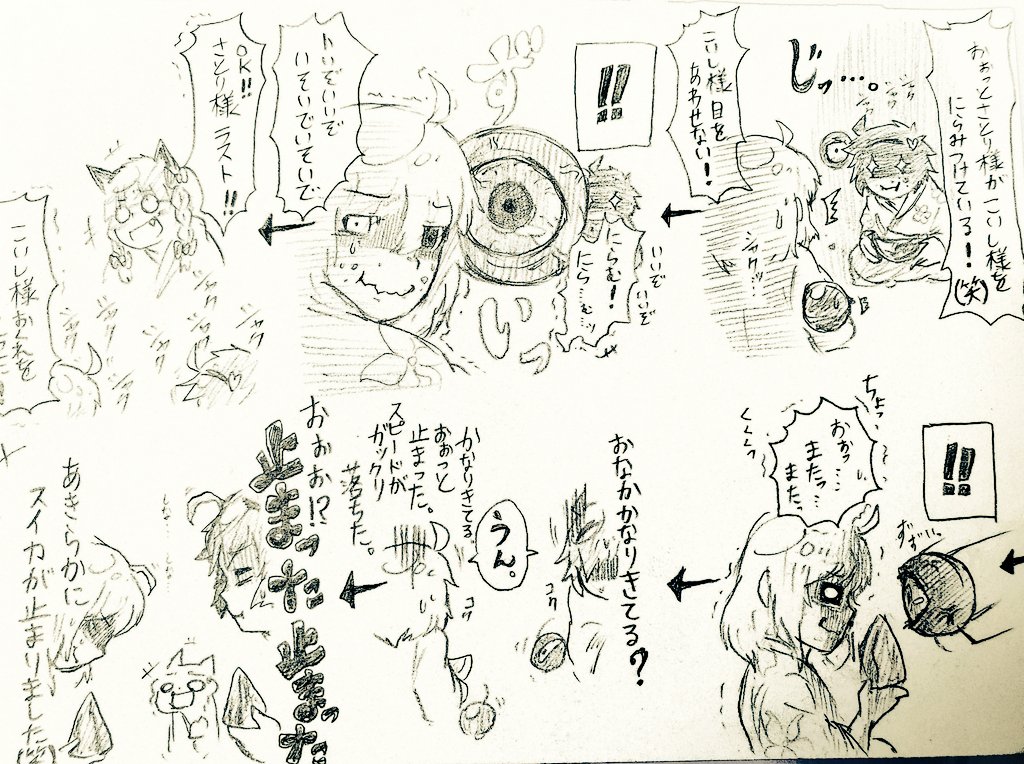 おぉっとさとり様がこいし様を
にらみつけている！(笑)
じっ…。
シャク
シャク
こいし様目を
あわせない！
シャクッ…
!!
ずぃっ
にらむ！
にら…む…ッ
いいぞ
いいぞ
いいぞいいぞ
いそいでいそいで
OK!!
さとり様ラスト!!
シャク
シャク
シャク
シャク
こいし様おくれを
!!
ずいっ
ちょっ…
おぉっ…
またっ…
また…
くくくっ
おなかかなりきてる？
うん。
コク
コク
かなりきてる
おぉっと
止まった。
スピードが
ガックリ
落ちた。
おぉお!?
止まった止まった
あきらかに
スイカが止まりました(笑)